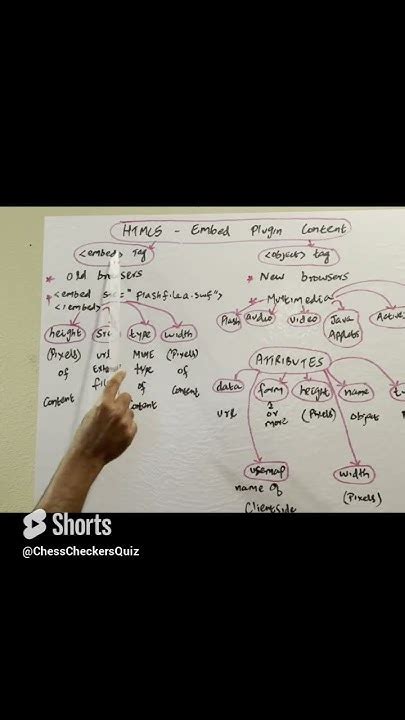 HTML5 - Embed Plugin Content
<embed> Tag
* Old browsers
* <embed src="flashfile.a.swf">
</embed>
height
type
width
(Pixels)
of
content
MIME
type
of
content
(Pixels)
of
content
<object> tag
* New browsers
* Multimedia
Flash
audio
video
Java
Applets
ATTRIBUTES
data
form
height
name
url
1
or
more
(Pixels)
object
usemap
name of
Clientside
width
(Pixels)
Shorts
@ChessCheckersQuiz